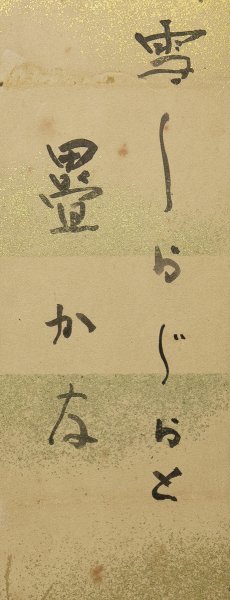 雪しらじらと
畳かな